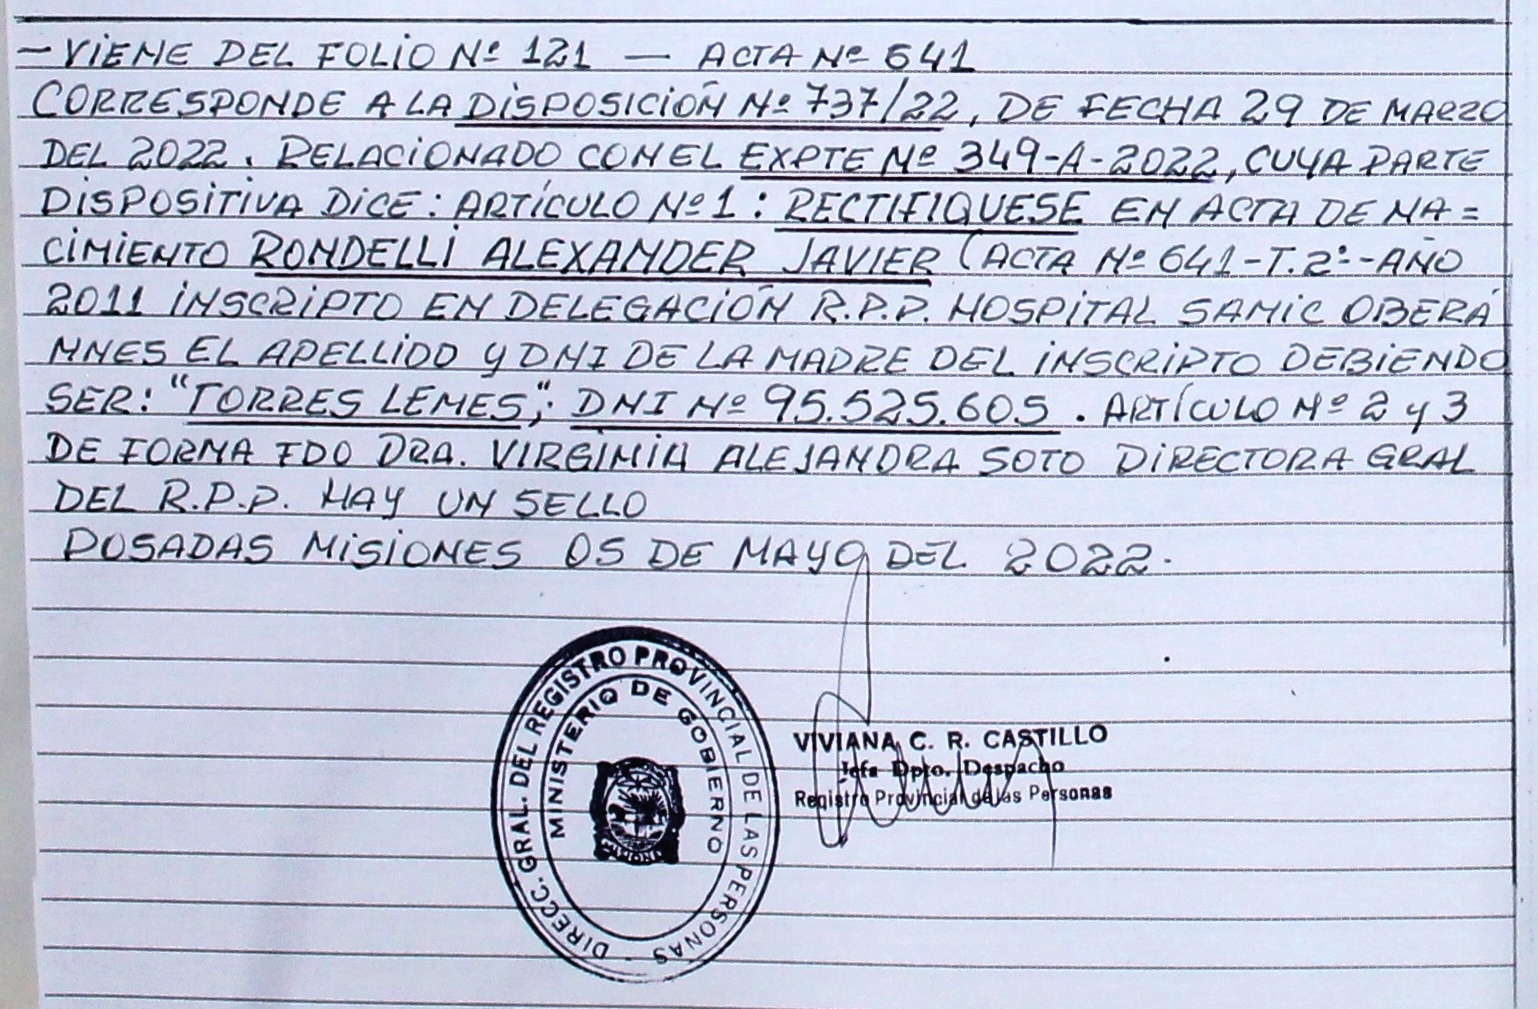 — VIENE DEL FOLIO Nº 121 — ACTA Nº 641
CORRESPONDE A LA DISPOSICIÓN Nº 737/22, DE FECHA 29 DE MARZO
DEL 2022. RELACIONADO CON EL EXPTE Nº 349-A-2022, CUYA PARTE
DISPOSITIVA DICE: ARTÍCULO Nº 1: RECTIFIQUESE EN ACTA DE NA=
CIMIENTO RONDELLI ALEXANDER JAVIER (ACTA Nº 641-T.2º-AÑO
2011 INSCRIPTO EN DELEGACIÓN R.P.P. HOSPITAL SAMIC OBERÁ
MNES EL APELLIDO Y DNI DE LA MADRE DEL INSCRIPTO DEBIENDO
SER: "TORRES LEMES", DNI Nº 95.525.605. ARTÍCULO Nº 2 y 3
DE FORMA FDO DRA. VIRGINIA ALEJANDRA SOTO DIRECTORA GRAL
DEL R.P.P. HAY UN SELLO
POSADAS MISIONES 05 DE MAYO DEL 2022.
DIRECC. GRAL. DEL REGISTRO PROVINCIAL DE LAS PERSONAS -
MINISTERIO DE GOBIERNO
VIVIANA C. R. CASTILLO
Jefa Dpto. Despacho
Registro Provincial de las Personas